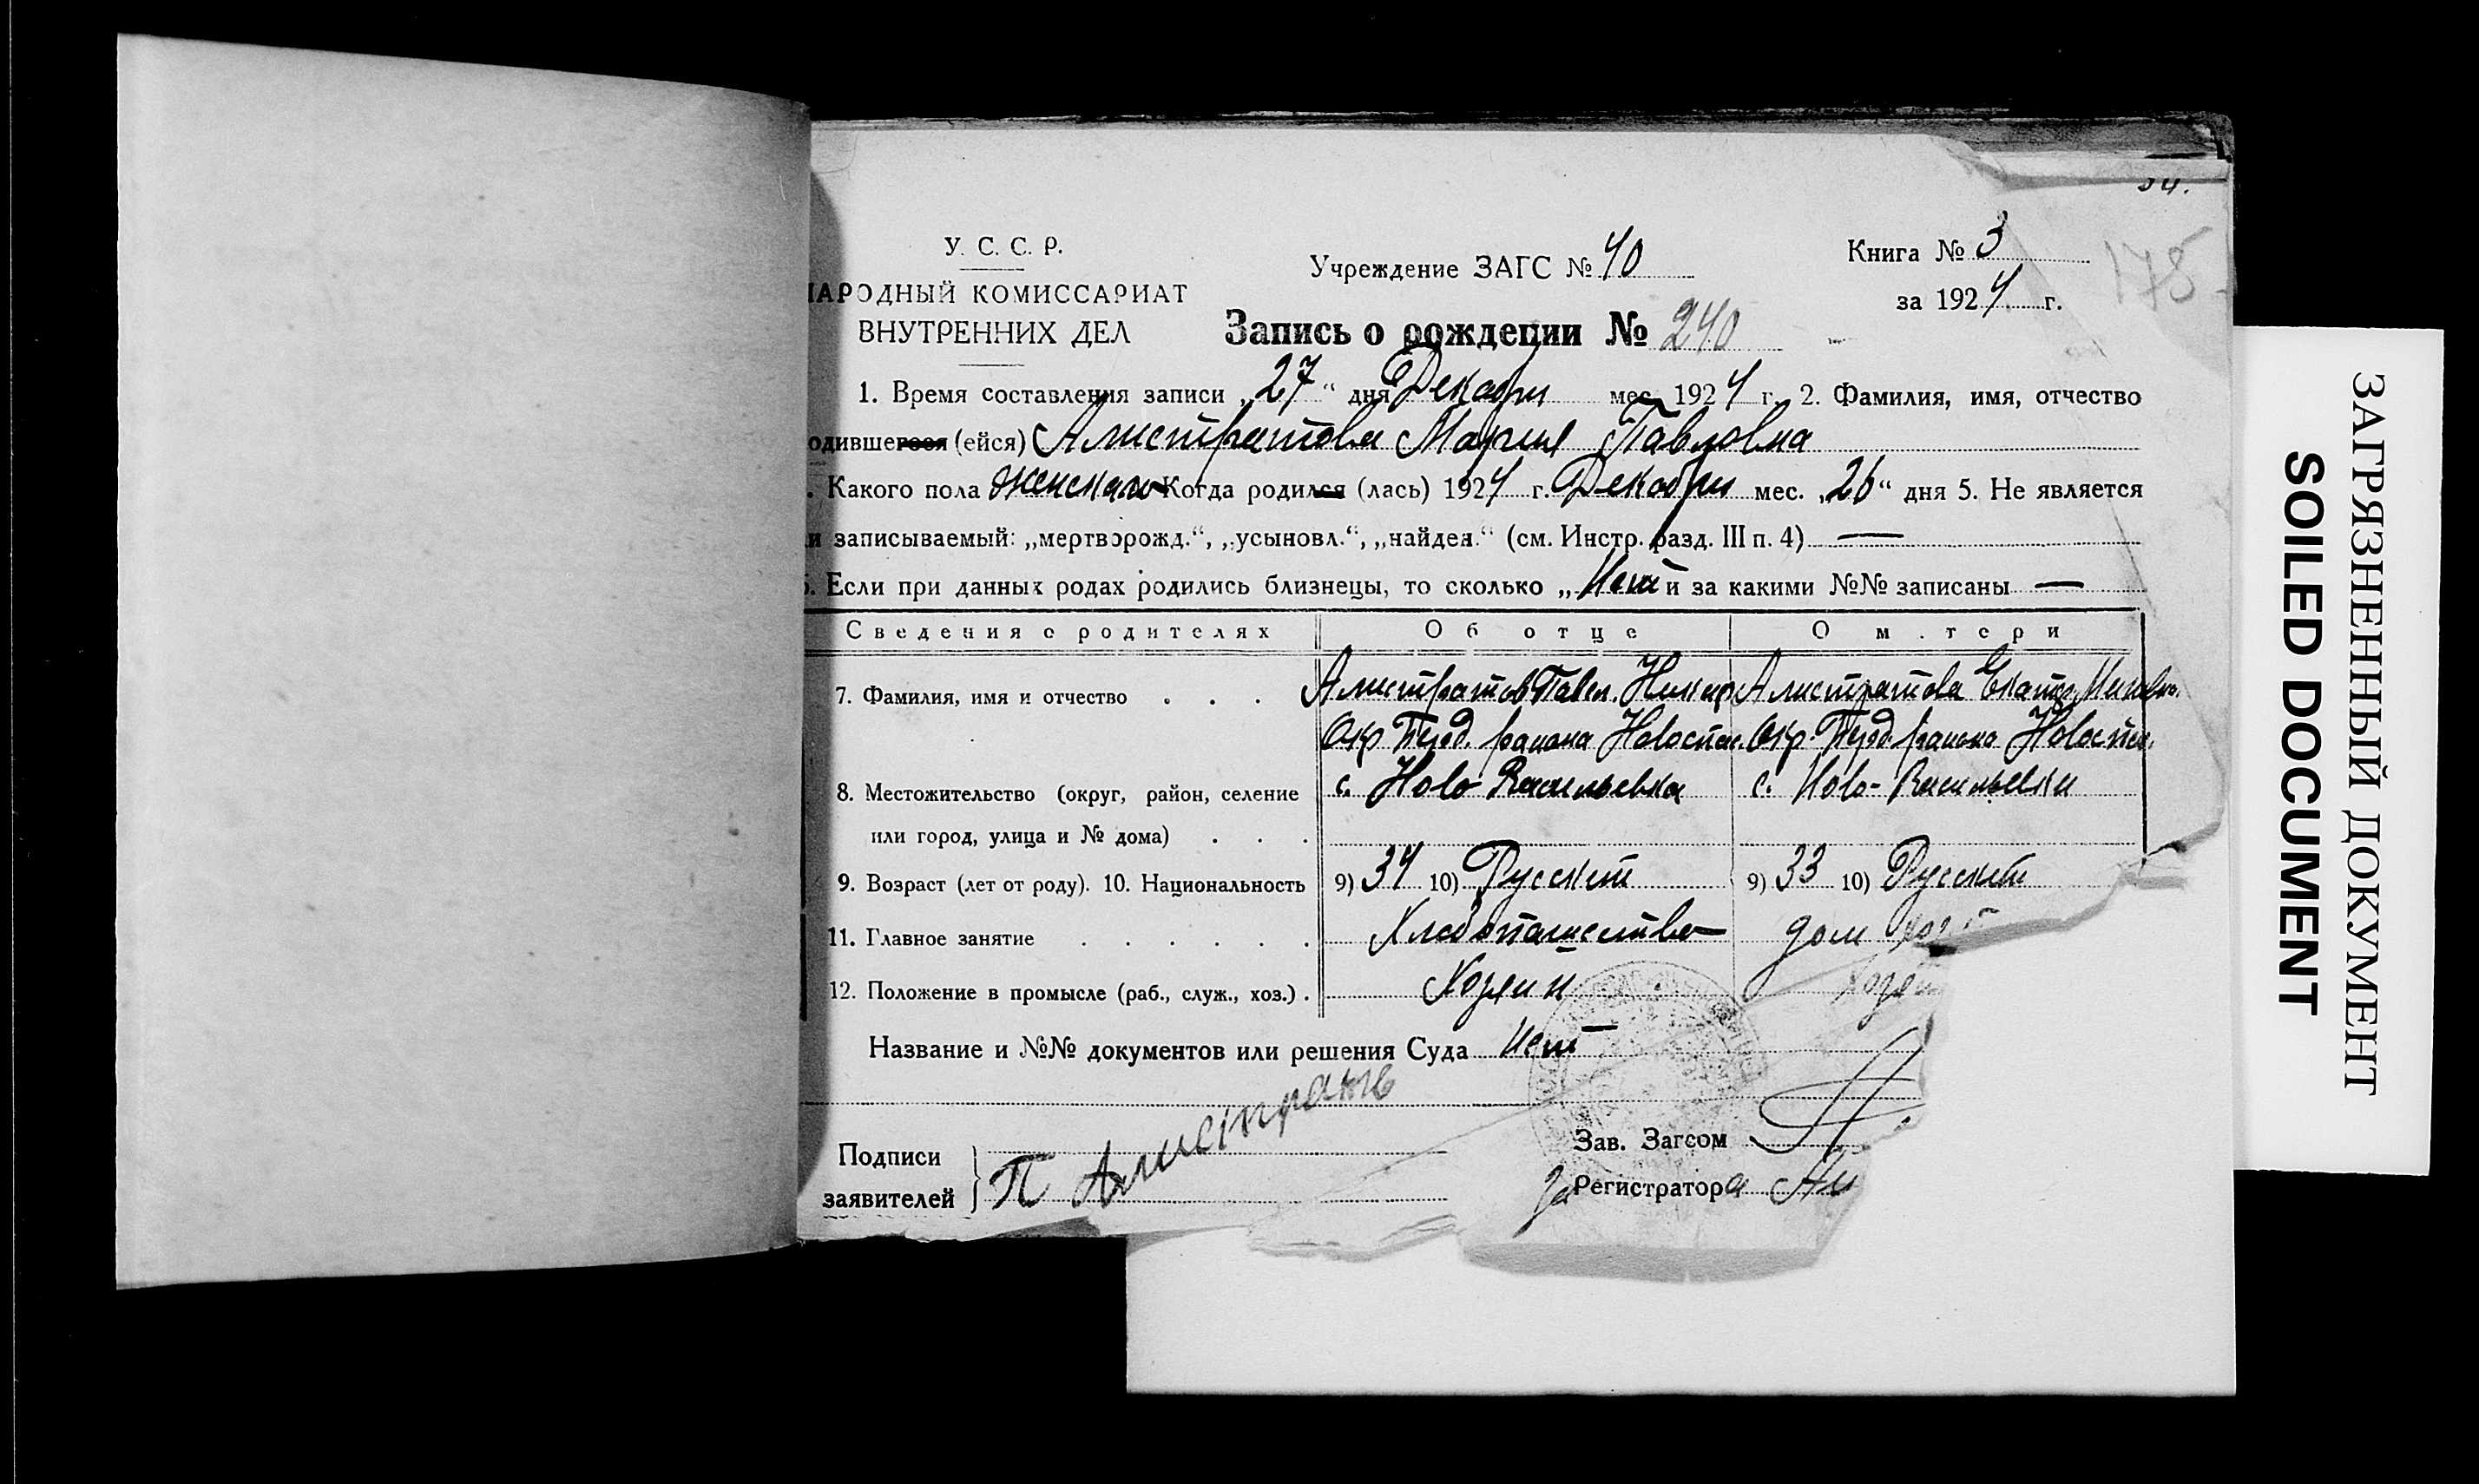 У. С. С. Р.
НАРОДНЫЙ КОМИССАРИАТ
ВНУТРЕННИХ ДЕЛ
Учреждение ЗАГС № 40
Книга № 3
за 1924 г.
175
Запись о рождении № 240
1. Время составления записи „27“ дня Декабри мес. 1924 г. 2. Фамилия, имя, отчество
одившегося (ейся) Алистратова Мария Павловна
Какого пола женскаго Когда родился (лась) 1924 г. Декабри мес. „26“ дня 5. Не является
и записываемый: „мертворожд.“, „усыновл.“, „найден.“ (см. Инстр. разд. III п. 4) —
6. Если при данных родах родились близнецы, то сколько „Нет и за какими №№ записаны —
Сведения о родителях Об отце О м.тери
7. Фамилия, имя и отчество . . . Алистратов Павел. Никир Алистратова Екатер.
Окр. района Новоспас. Окр. района Новоспас.
8. Местожительство (округ, район, селение с. Ново-Васильевка с. Ново-Васильевки
или город, улица и № дома) . . .
9. Возраст (лет от роду). 10. Национальность 9) 34 10) Русский 9) 33 10) Русский
11. Главное занятие . . . . . . Хлебопашество дом
12. Положение в промысле (раб., служ., хоз.) . Хозяин
Название и №№ документов или решения Суда Нет
Подписи
заявителей П Алистратов
Зав. Загсом
За Регистратора
ЗАГРЯЗНЕННЫЙ ДОКУМЕНТ
SOILED DOCUMENT